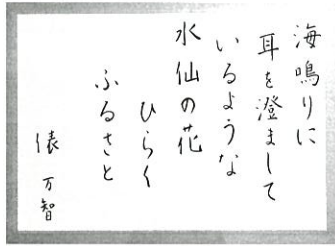 海鳴りに
耳を澄まして
いるような
水仙の花
ひらく
ふるさと
俵 万智